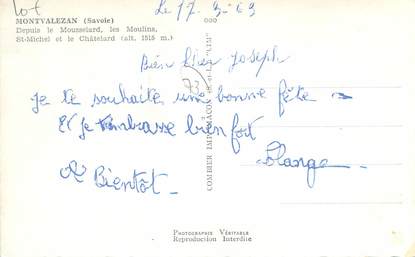 Lot
Le 17-3-69
MONTVALEZAN (Savoie)
Depuis le Mousselard, les Moulins,
St-Michel et le Châtelard (alt. 1515 m.)
Bien cher Joseph
73
je te souhaite une bonne fête
Et je t'embrasse bien fort
Solange
A Bientôt
COMBIER IMP. MACON
"CIM"
PHOTOGRAPHIE VÉRITABLE
Reproduction Interdite